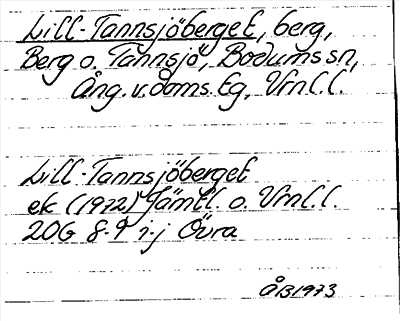 Lill-Tannsjöberget, berg,
Berg o. Tannsjö, Bodums sn,
Ång. v. doms. tg, Vrnl. l.
Lill-Tannsjöberget
ek (1972) Jämtl. o. Vrnl. l.
20G 8-9 i-j Övra
ÅB1973